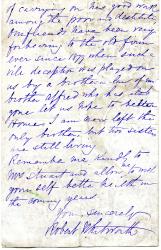 of carrying on his good work
among the poor & destitute
our friends have been very
forbearing to the old firm
ever since 1877 when such
vile deception was played on
us by a brother in law of my
brother Alfred who has just
gone let us hope to better
Home I am now left the
only brother, but two sisters
are still living.
Remember me kindly to
Mrs Stuart and allow me to wish
yourself better health in
the coming years
Yours Sincerely
Robert Whitworth